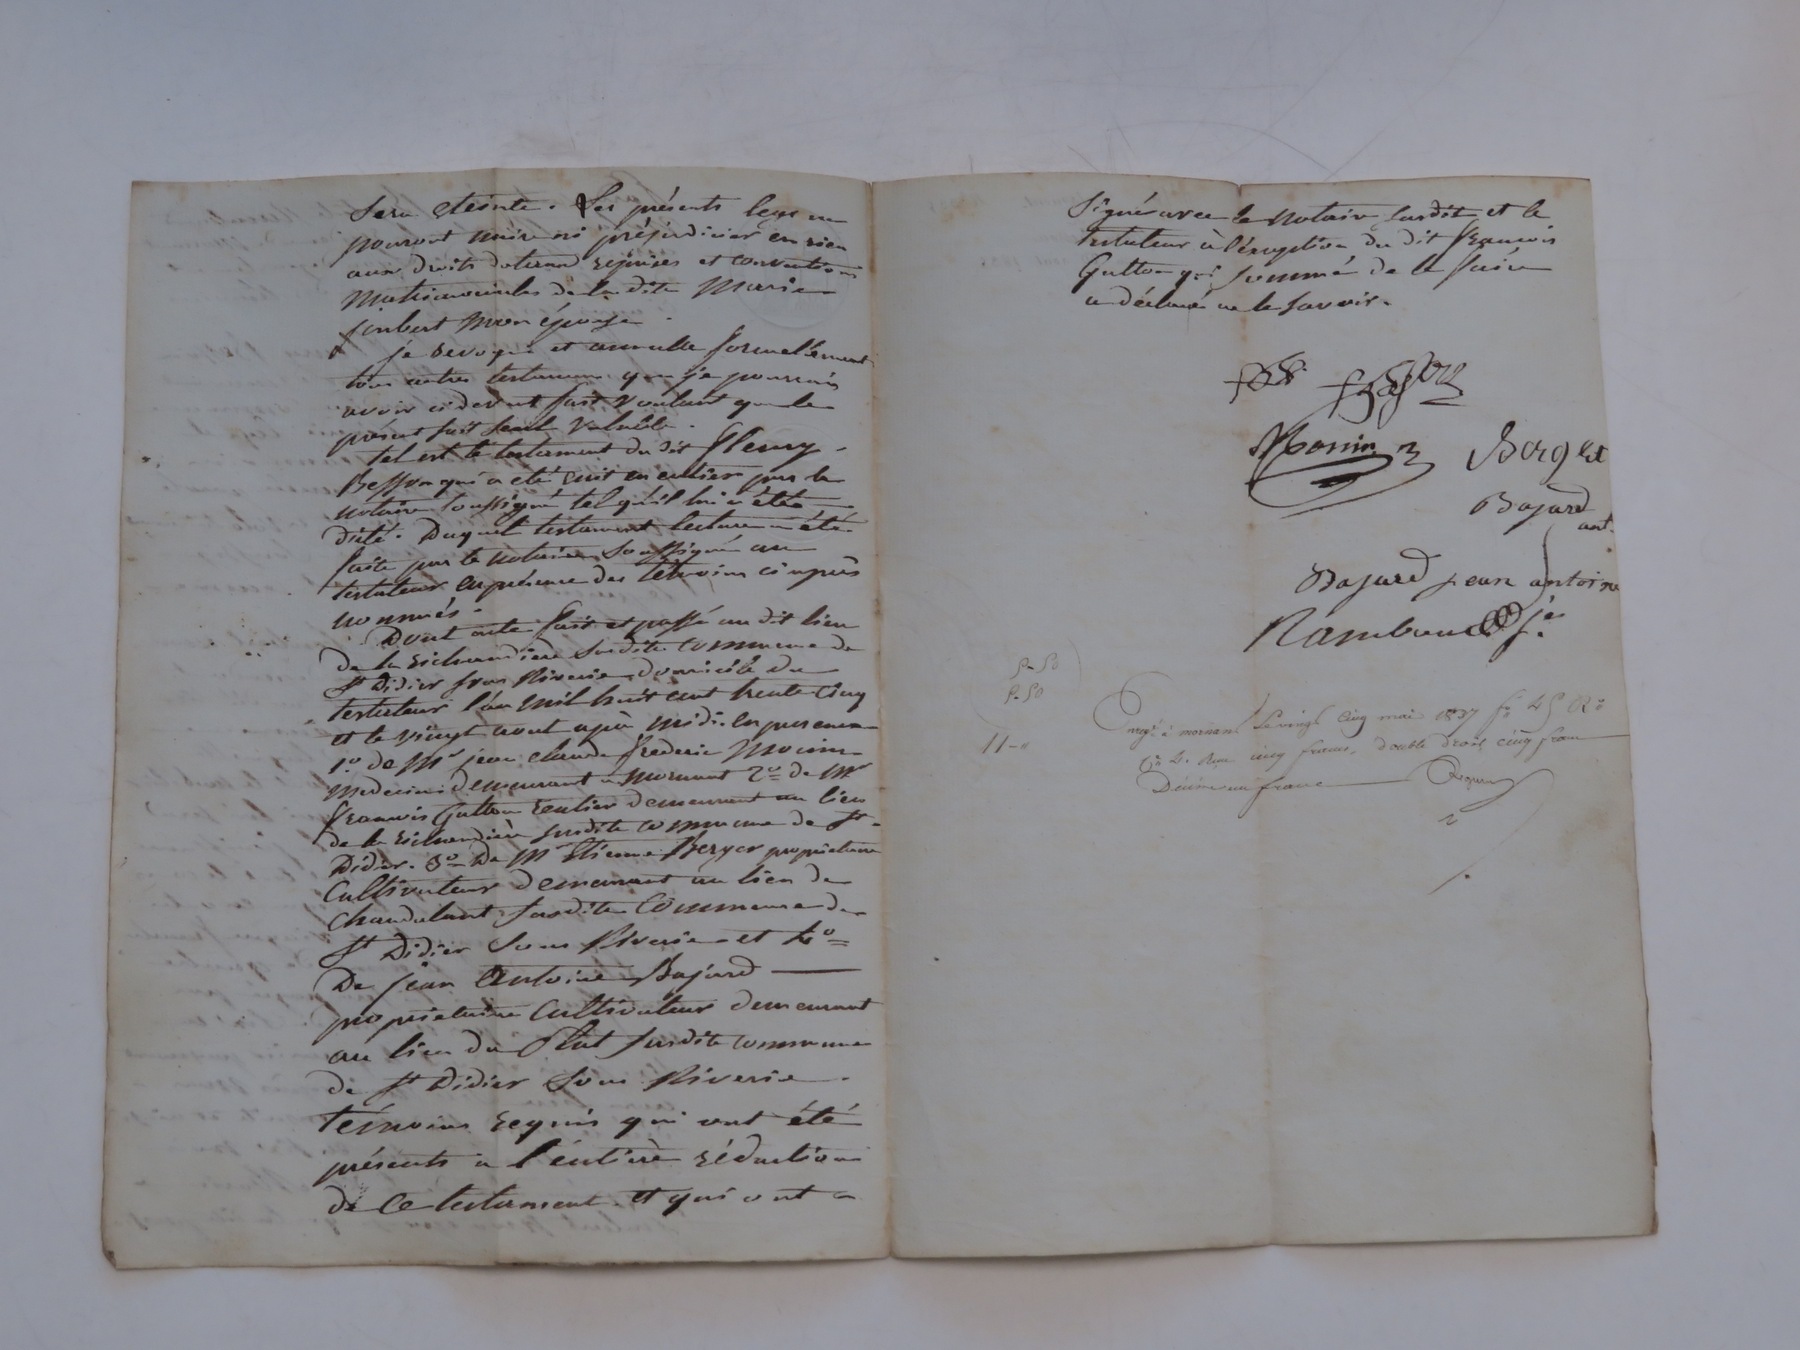 Sera eteinte. Les présents legs ne
pouront nuire ni préjudicier en rien
aux droits dotaux reprises et conventions
Matrimoniales de la dite Marie
Jinbert Mon épouse.
Je revoque et annulle formellement
tous autres testamens que je pourrais
avoir cidevant fait Voulant que le
présent soit seul Valable.
tel est le testament du dit Fleury
Besson qui a été écrit en entier par le
notaire soussigné tel qu'il lui a été
dicté. Duquel testament lecture a été
faite par le notaire soussigné au
testateur en présence des témoins ci après
nommés.
Dont acte fait et passé au dit lieu
de la Richaudiere susdite commune de
St Didier sous Riverie domicile du
testateur l'an mil huit cent trente cinq
et le vingt aout après midi. En presence
1.º de Mr jean claude frederic Monin
Medecin demeurant a Mornant 2º de Mr
françois Gutton rentier demeurant au lieu
de la Richaudière susdite commune de St
Didier. 3º De Mr Etienne Berger propriétaire
Cultivateur demeurant au lieu de
Chaudulant susdite Commune de
St Didier Sous Riverie et 4º
De jean Antoine Bajard
propriétaire Cultivateur demeurant
au lieu du Plat susdite commune
de St Didier Sous Riverie.
témoins requis qui ont été
présents a l'entière rédaction
de ce testament et qui ont
Signé avec le Notaire susdit et le
testateur à l'éxception du dit françois
Gutton qui sommé de le faire
a déclaré ne le savoir.
Monin
Berger
Bajard
ant.
Bajard jean antoine
Rambaud je
5-50
5-50
11-"
Enregé à mornant Le vingt cinq mai 1837 fº 45 Rº
Cº 4. Reçu cinq francs, double droit cinq francs
Décime un franc